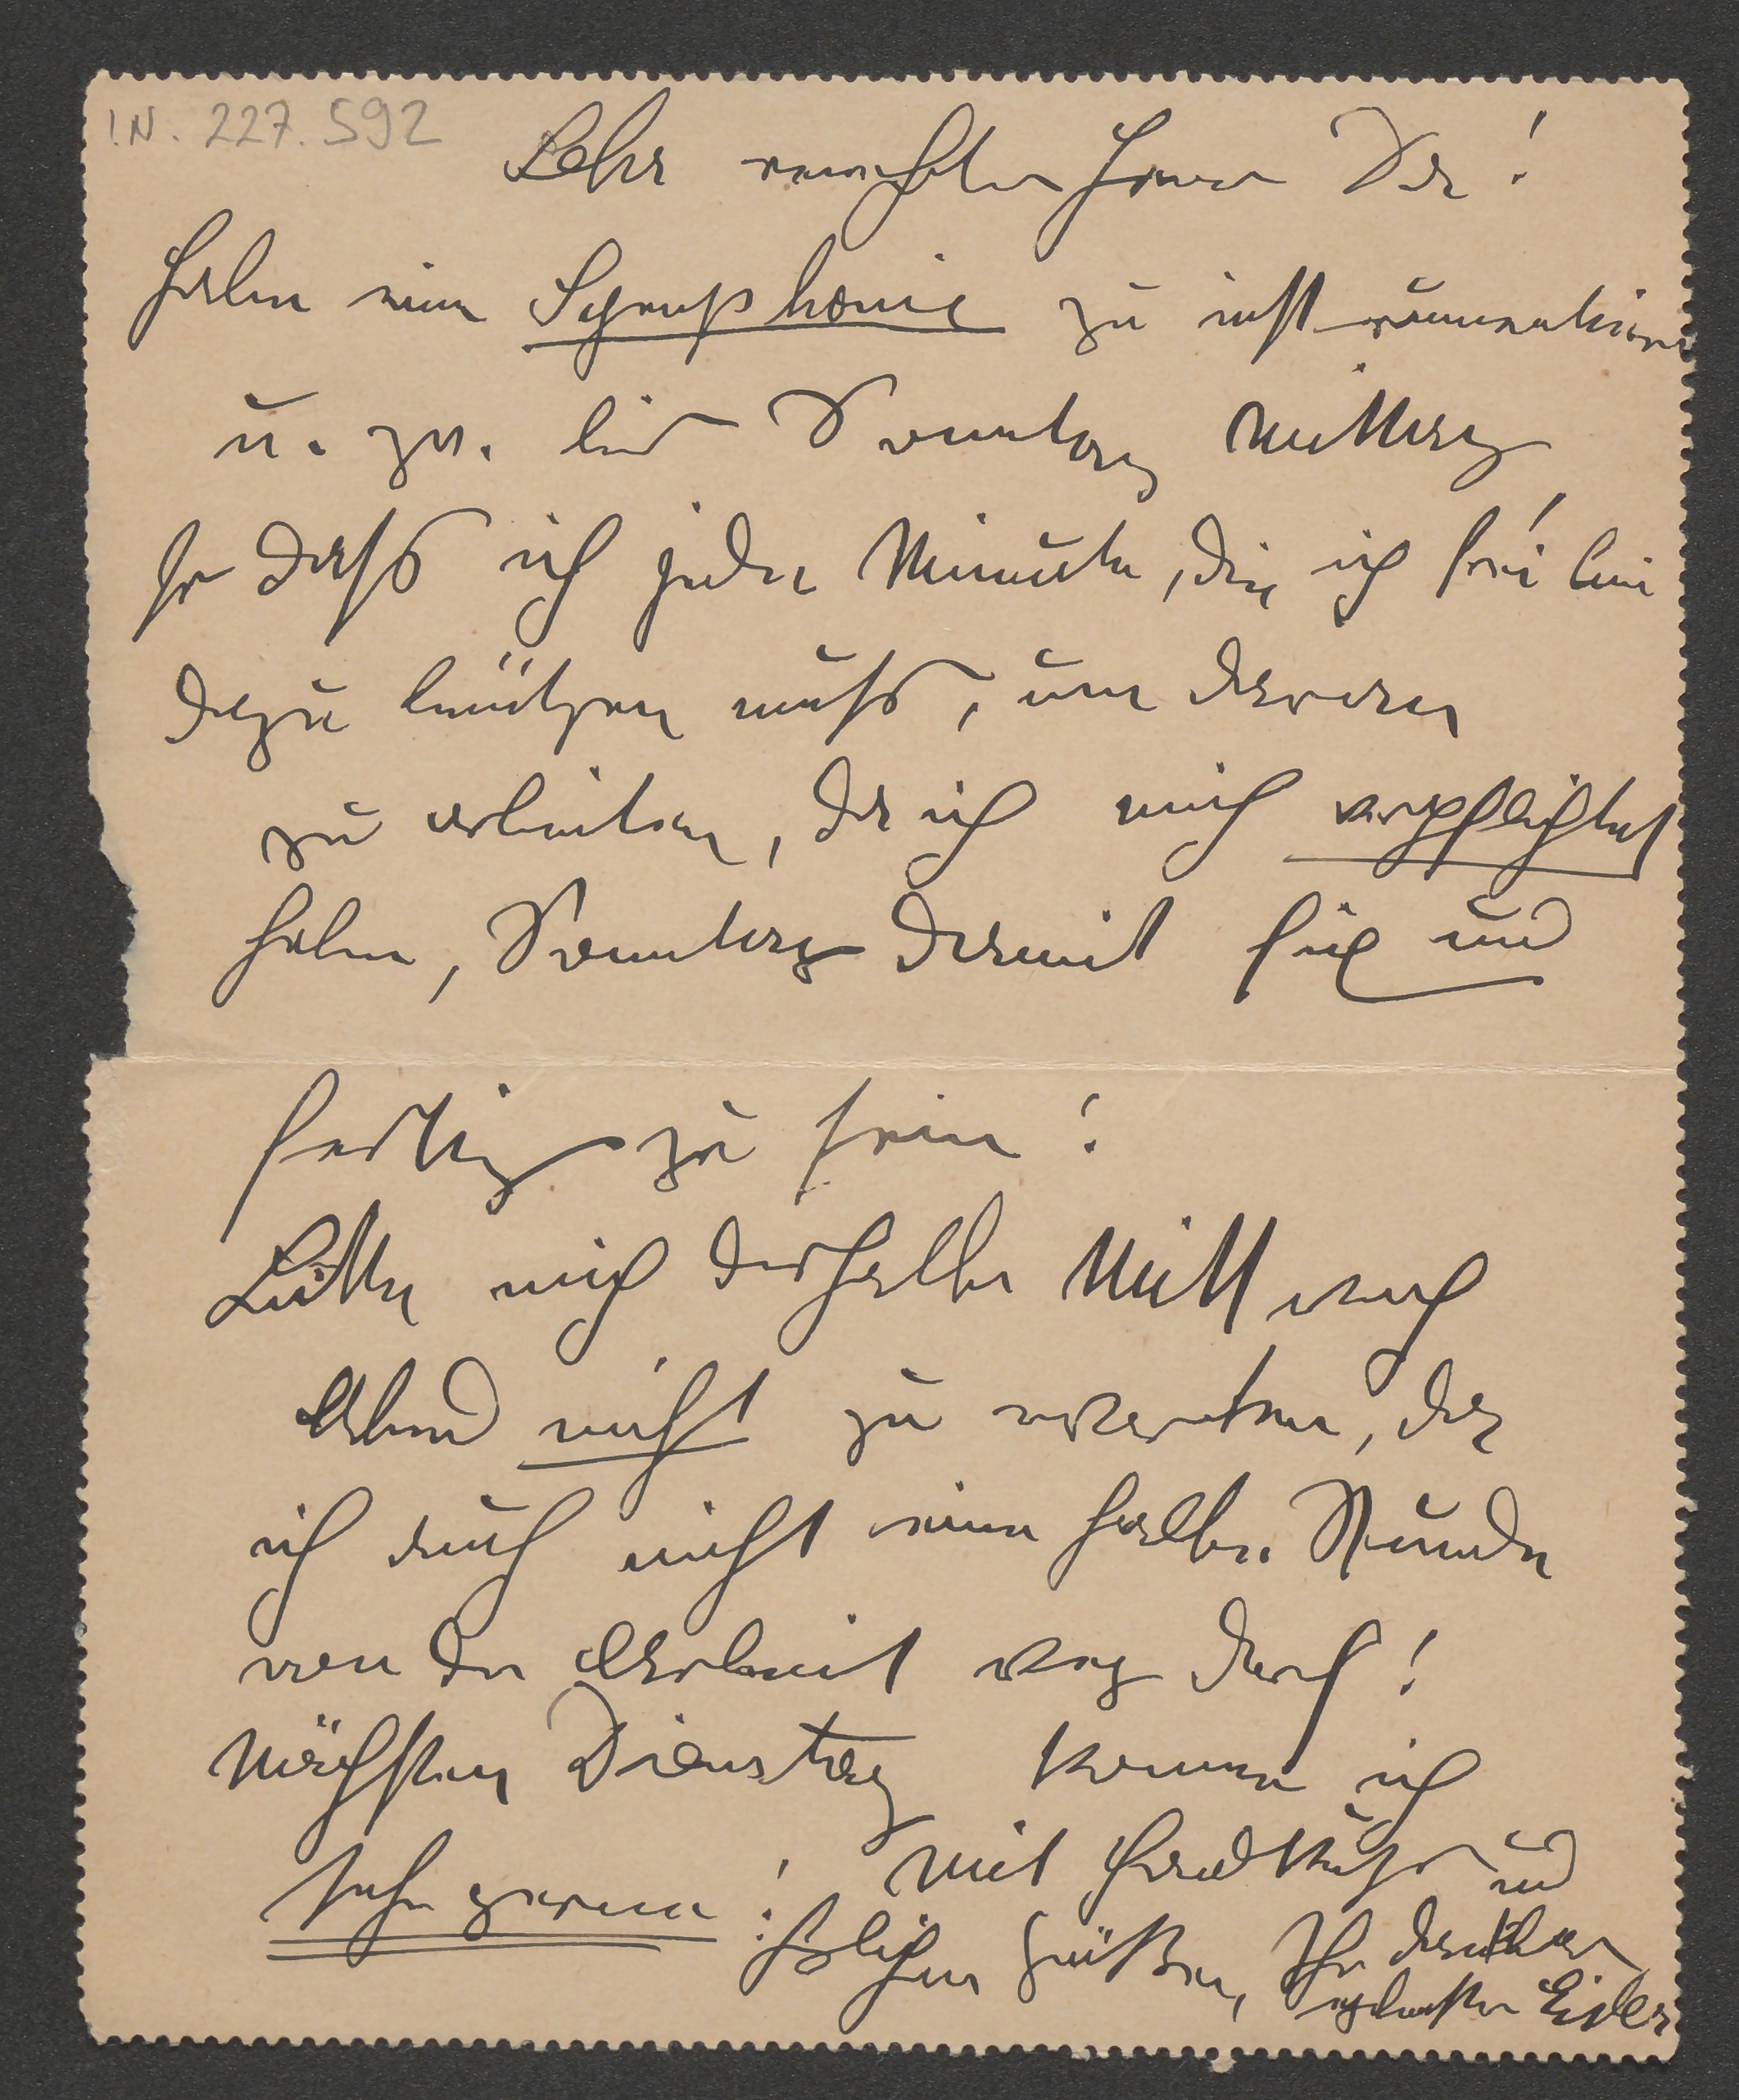 I.N. 227.592
Sehr verehrter Herr Dr!
Habe eine Symphonie zu instrumentieren
u. zw. bis Sonntag Mittag
so dass ich jede Minute, die ich frei bin
dazu benützen muss, um daran
zu arbeiten, da ich mich verpflichtet
habe, Sonntag damit fix und
fertig zu sein!
Bitte mich deshalb Mittwoch
Abend nicht zu erwarten, da
ich auch nicht eine halbe Stunde
von der Arbeit weg darf!
Nächsten Dienstag komme ich
sehr gerne! Mit Handkuss und
herzlichen Grüßen, Ihr dankbar
ergebenster Eisler